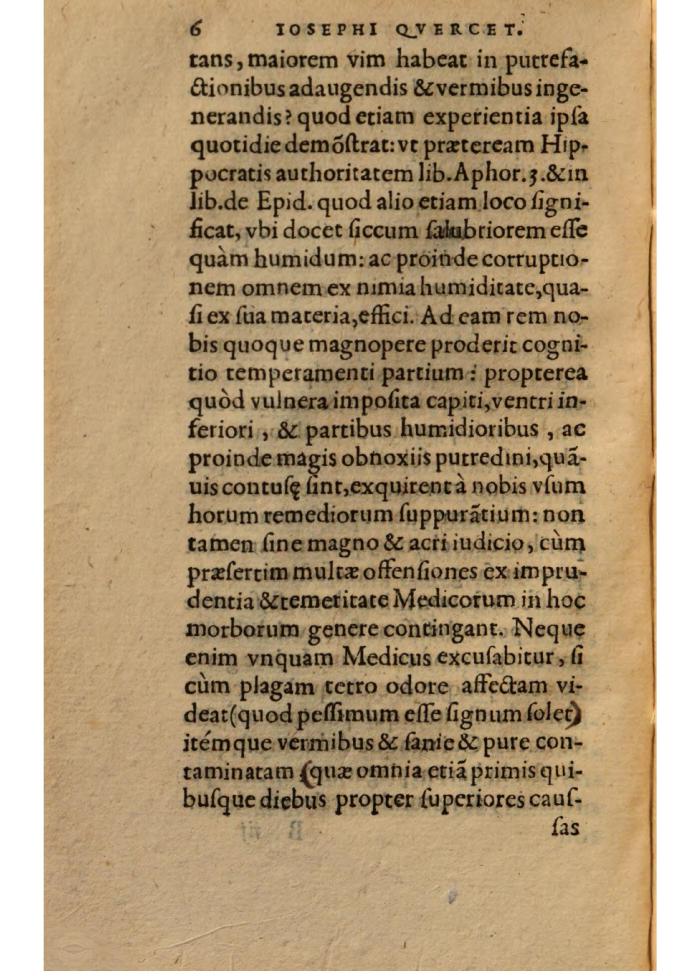 6 IOSEPHI QVERCET.
tans, maiorem vim habeat in putrefa-
ctionibus adaugendis & vermibus inge-
nerandis? quod etiam experientia ipsa
quotidie demõſtrat: vt præteream Hip-
pocratis authoritatem lib. Aphor. 3. & in
lib. de Epid. quod alio etiam loco ſigni-
ficat, vbi docet ſiccum ſalubriorem eſſe
quàm humidum: ac proinde corruptio-
nem omnem ex nimia humiditate, qua-
ſi ex ſua materia, effici. Ad eam rem no-
bis quoque magnopere proderit cogni-
tio temperamenti partium: propterea
quòd vulnera impoſita capiti, ventri in-
feriori, & partibus humidioribus, ac
proinde magis obnoxiis putredini, quã-
uis contuſę ſint, exquirent à nobis vſum
horum remediorum ſuppurãtium: non
tamen ſine magno & acri iudicio, cùm
præſertim multæ offenſiones ex impru-
dentia & temeritate Medicorum in hoc
morborum genere contingant. Neque
enim vnquam Medicus excuſabitur, ſi
cùm plagam tetro odore affectam vi-
deat (quod peſſimum eſſe ſignum ſolet)
itémque vermibus & ſanie & pure con-
taminatam (quæ omnia etiã primis qui-
buſque diebus propter ſuperiores cauſ-
ſas